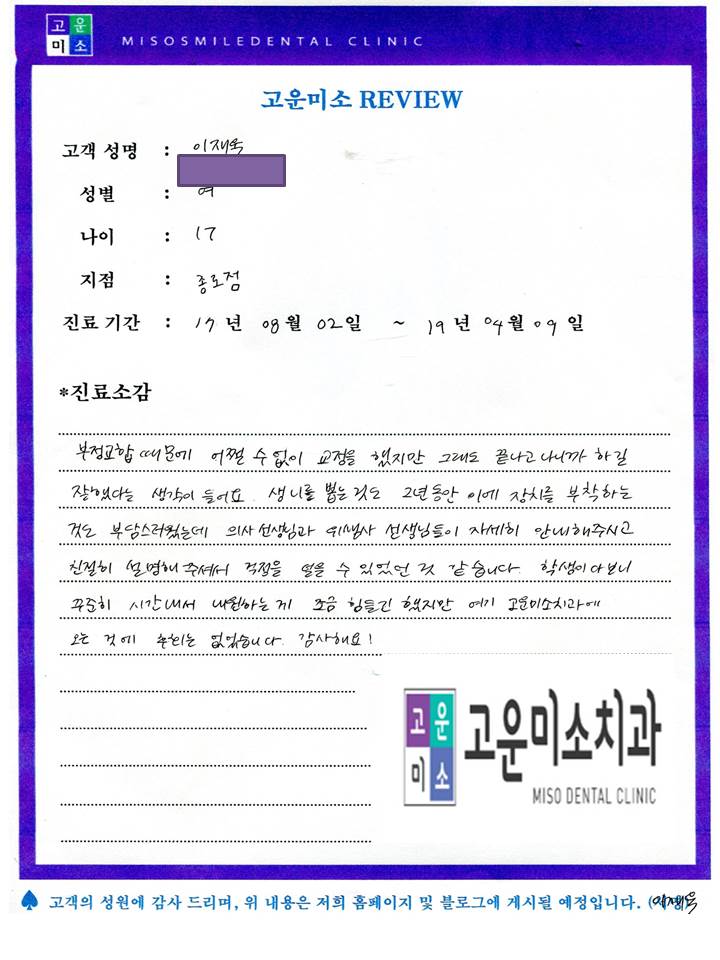 고운
미소
MISOSMILEDENTAL CLINIC
고운미소 REVIEW
고객 성명 : 이재욱
성별 : 여
나이 : 17
지점 : 종로점
진료 기간 : 17년 08월 02일 ~ 19년 04월 09일
*진료소감
부정교합 때문에 어쩔 수 없이 교정을 했지만 그래도 끝나고 나니까 하길
잘했다는 생각이 들어요. 생니를 뽑는 것도 2년동안 이에 장치를 부착하는
것도 부담스러웠는데 의사선생님과 위생사 선생님들이 자세히 안내해주시고
친절히 설명해 주셔서 걱정을 덜을 수 있었던 것 같습니다. 학생이다보니
꾸준히 시간내서 내원하는게 조금 힘들긴 했지만 여기 고운미소치과에
오는 것에 는 없었습니다. 감사해요!
고운
미소
고운미소치과
MISO DENTAL CLINIC
고객의 성원에 감사 드리며, 위 내용은 저희 홈페이지 및 블로그에 게시될 예정입니다. 이재욱